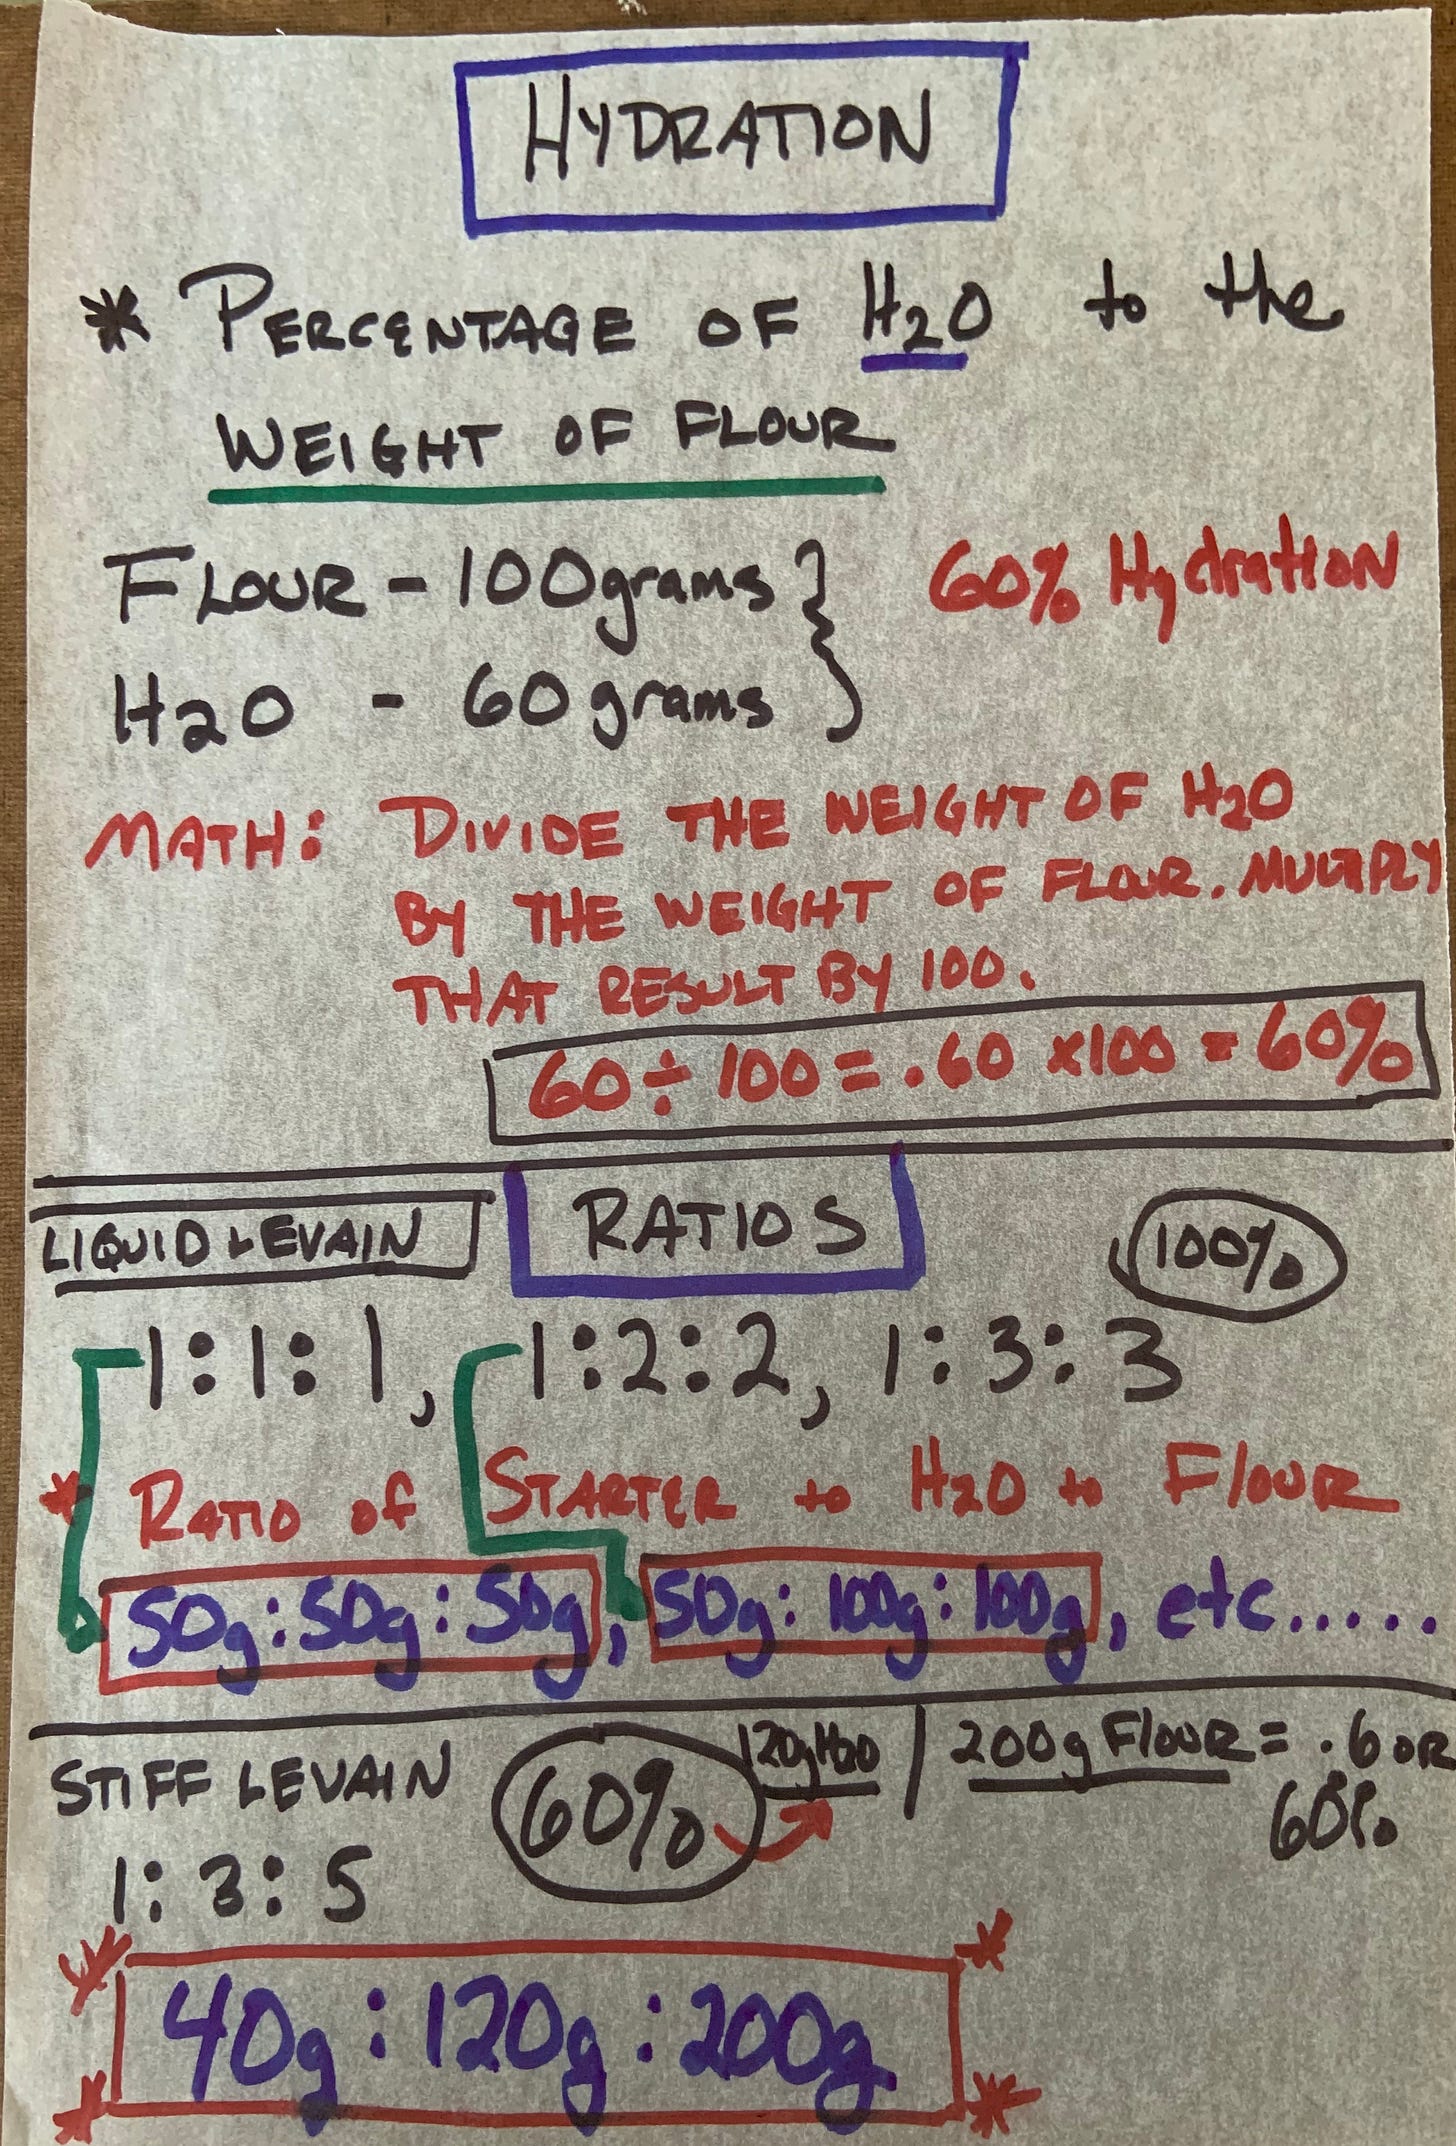 HYDRATION
* PERCENTAGE OF H2O to the
WEIGHT OF FLOUR
FLOUR - 100grams } 60% HydratION
H2O - 60grams
MATH: DIVIDE THE WEIGHT OF H2O
BY THE WEIGHT OF FLOUR. MULTIPLY
THAT RESULT BY 100.
60 ÷ 100 = .60 x100 = 60%
LIQUID LEVAIN RATIOS 100%
1:1:1, 1:2:2, 1:3:3
* RATIO of STARTER to H2O to FlOUR
50g:50g:50g, 50g:100g:100g, etc.....
STIFF LEVAIN 60% 120gH2O / 200g FlOUR = .6 OR
60%
1:3:5
40g:120g:200g